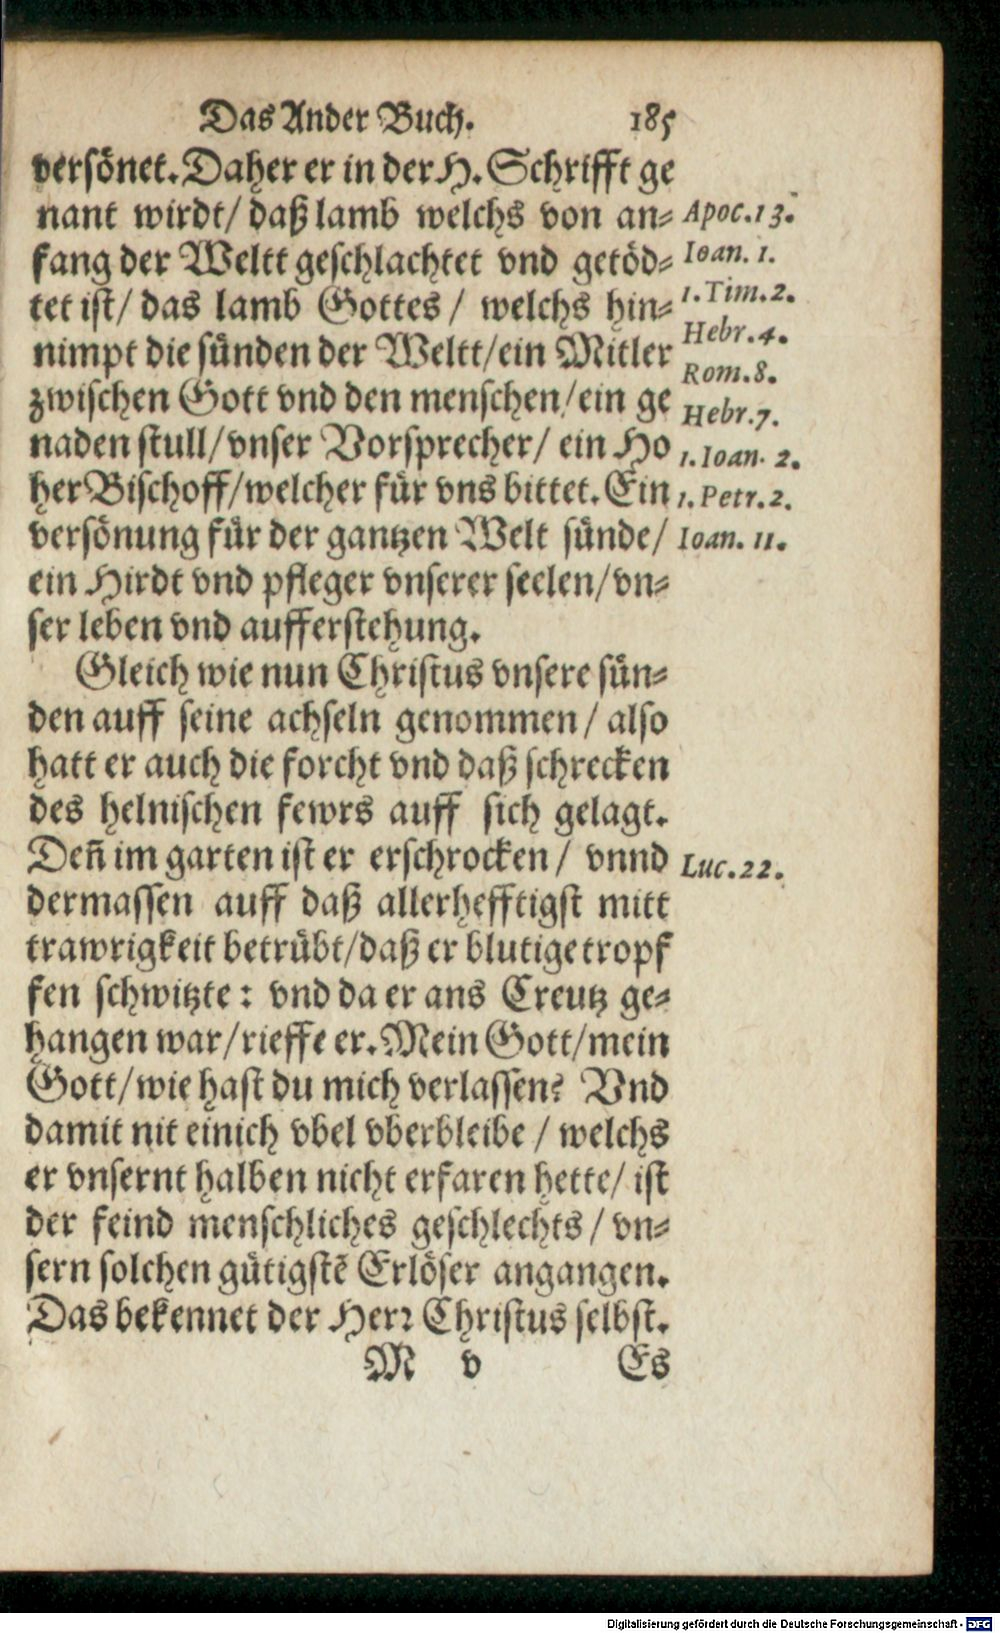 Das Ander Buch. 185
versönet. Daher er in der H. Schrifft ge
nant wirdt/ daß lamb welchs von an⸗ Apoc. 13.
fang der Weltt geschlachtet vnd getöd⸗ Ioan. 1.
tet ist/ das lamb Gottes/ welchs hin⸗ 1. Tim. 2.
nimpt die sünden der Weltt/ein Mitler Hebr. 4.
zwischen Gott vnd den menschen/ein ge Rom. 8.
naden stull/vnser Vorsprecher/ ein Ho Hebr. 7.
her Bischoff/welcher für vns bittet. Ein 1. Ioan. 2.
versönung für der gantzen Welt sünde/ 1. Petr. 2.
ein Hirdt vnd pfleger vnserer seelen/vn⸗ Ioan. 11.
ser leben vnd aufferstehung.
Gleich wie nun Christus vnsere sün⸗
den auff seine achseln genommen/ also
hatt er auch die forcht vnd daß schrecken
des helnischen fewrs auff sich gelagt.
Deñ im garten ist er erschrocken/ vnnd Luc. 22.
dermassen auff daß allerhefftigst mitt
trawrigkeit betrübt/daß er blutige tropf
fen schwitzte: vnd da er ans Creutz ge⸗
hangen war/rieffe er. Mein Gott/mein
Gott/wie hast du mich verlassen? Vnd
damit nit einich vbel vberbleibe/ welchs
er vnsernt halben nicht erfaren hette/ ist
der feind menschliches geschlechts/ vn⸗
sern solchen gütigstē Erlöser angangen.
Das bekennet der Herr Christus selbst.
M v Es
Digitalisierung gefördert durch die Deutsche Forschungsgemeinschaft - DFG